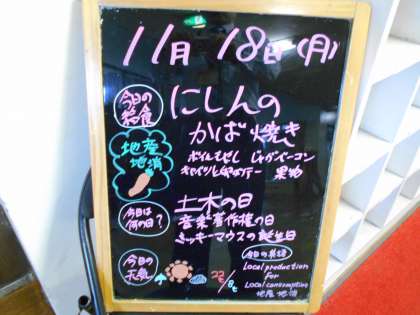 11月18日(月)
今日の給食
にしんの
かば焼き
地産地消
ボイルもやし じゃがベーコン
果物
今日は何の日？
土木の日
音楽著作権の日
ミッキーマウスの誕生日
今日の天気
22℃/8℃
今日の英語
Local production
For
Local consumption
地産地消